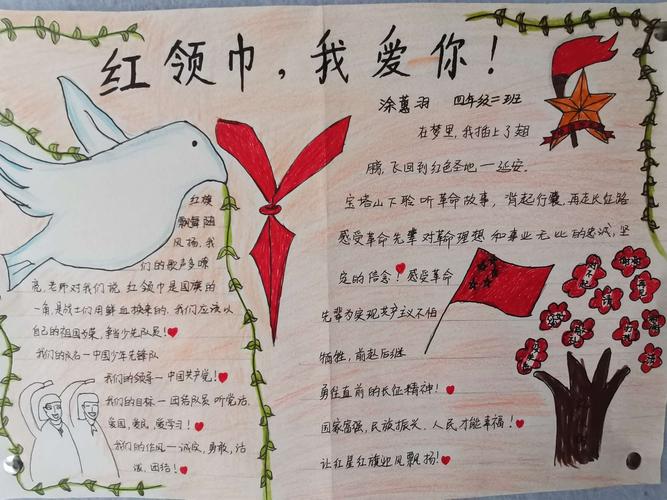 红领巾，我爱你！
涂蕙羽 四年级二班
红旗
飘舞随
风扬，我
们的歌声多嘹
亮，老师对我们说红领巾是国旗的
一角，是战士们用鲜血换来的，我们应该以
自己的祖国为荣，争当少先队员！
我们的队名一中国少年先锋队
我们的领导一中国共产党！
我们的目标一团结队员听党话，
爱国，爱民，爱学习！
我们的作风一诚实，勇敢，活
泼，团结！
在梦里，我插上了翅
膀，飞回到红色圣地一延安。
宝塔山下聆听革命故事，背起行囊再走长征路
感受革命先辈对革命理想和事业无比的忠诚，坚
定的信念！感受革命
先辈为实现共产主义不怕
牺牲，前赴后继
勇往直前的长征精神！
国家富强，民族振兴，人民才能幸福！
让红星红旗迎风飘扬！
对不起
谢谢
再见